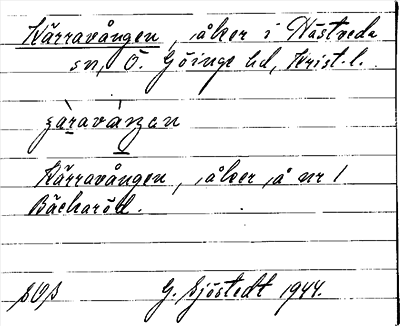 Kärravången, åker i Nästveda
sn, Ö. Göinge hd, Krist. l.
Kärravången, åker å nr 1
Bäckaröd.
G. Sjöstedt 1944.